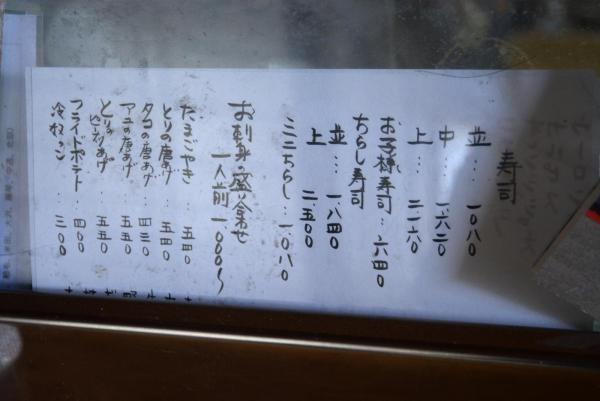 寿司
並…一〇八〇
中…一六二〇
上…二一六〇
お子様寿司…六四〇
ちらし寿司
並…一八四〇
上　二五〇〇
ミニちらし…一〇八〇
お刺身盛合せ
一人前　一〇〇〇〜
だまごやき…五四〇
とりの唐揚げ…五四〇
タコの唐あげ…四三〇
アジの唐あげ…五五〇
五五〇
フライドポテト…四〇〇
三〇〇